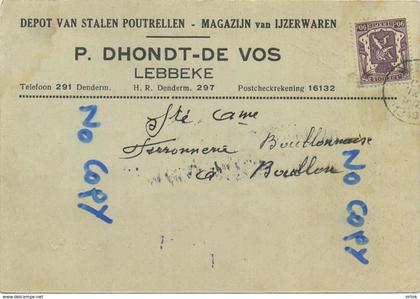 DEPOT VAN STALEN POUTRELLEN - MAGAZIJN van IJZERWAREN
P. DHONDT-DE VOS
LEBBEKE
Telefoon 291 Denderm. H. R. Denderm. 297 Postcheckrekening 16132
Sté Ame
Ferronnerie Bouillonnaise
à Bouillon
No Copy
No Copy